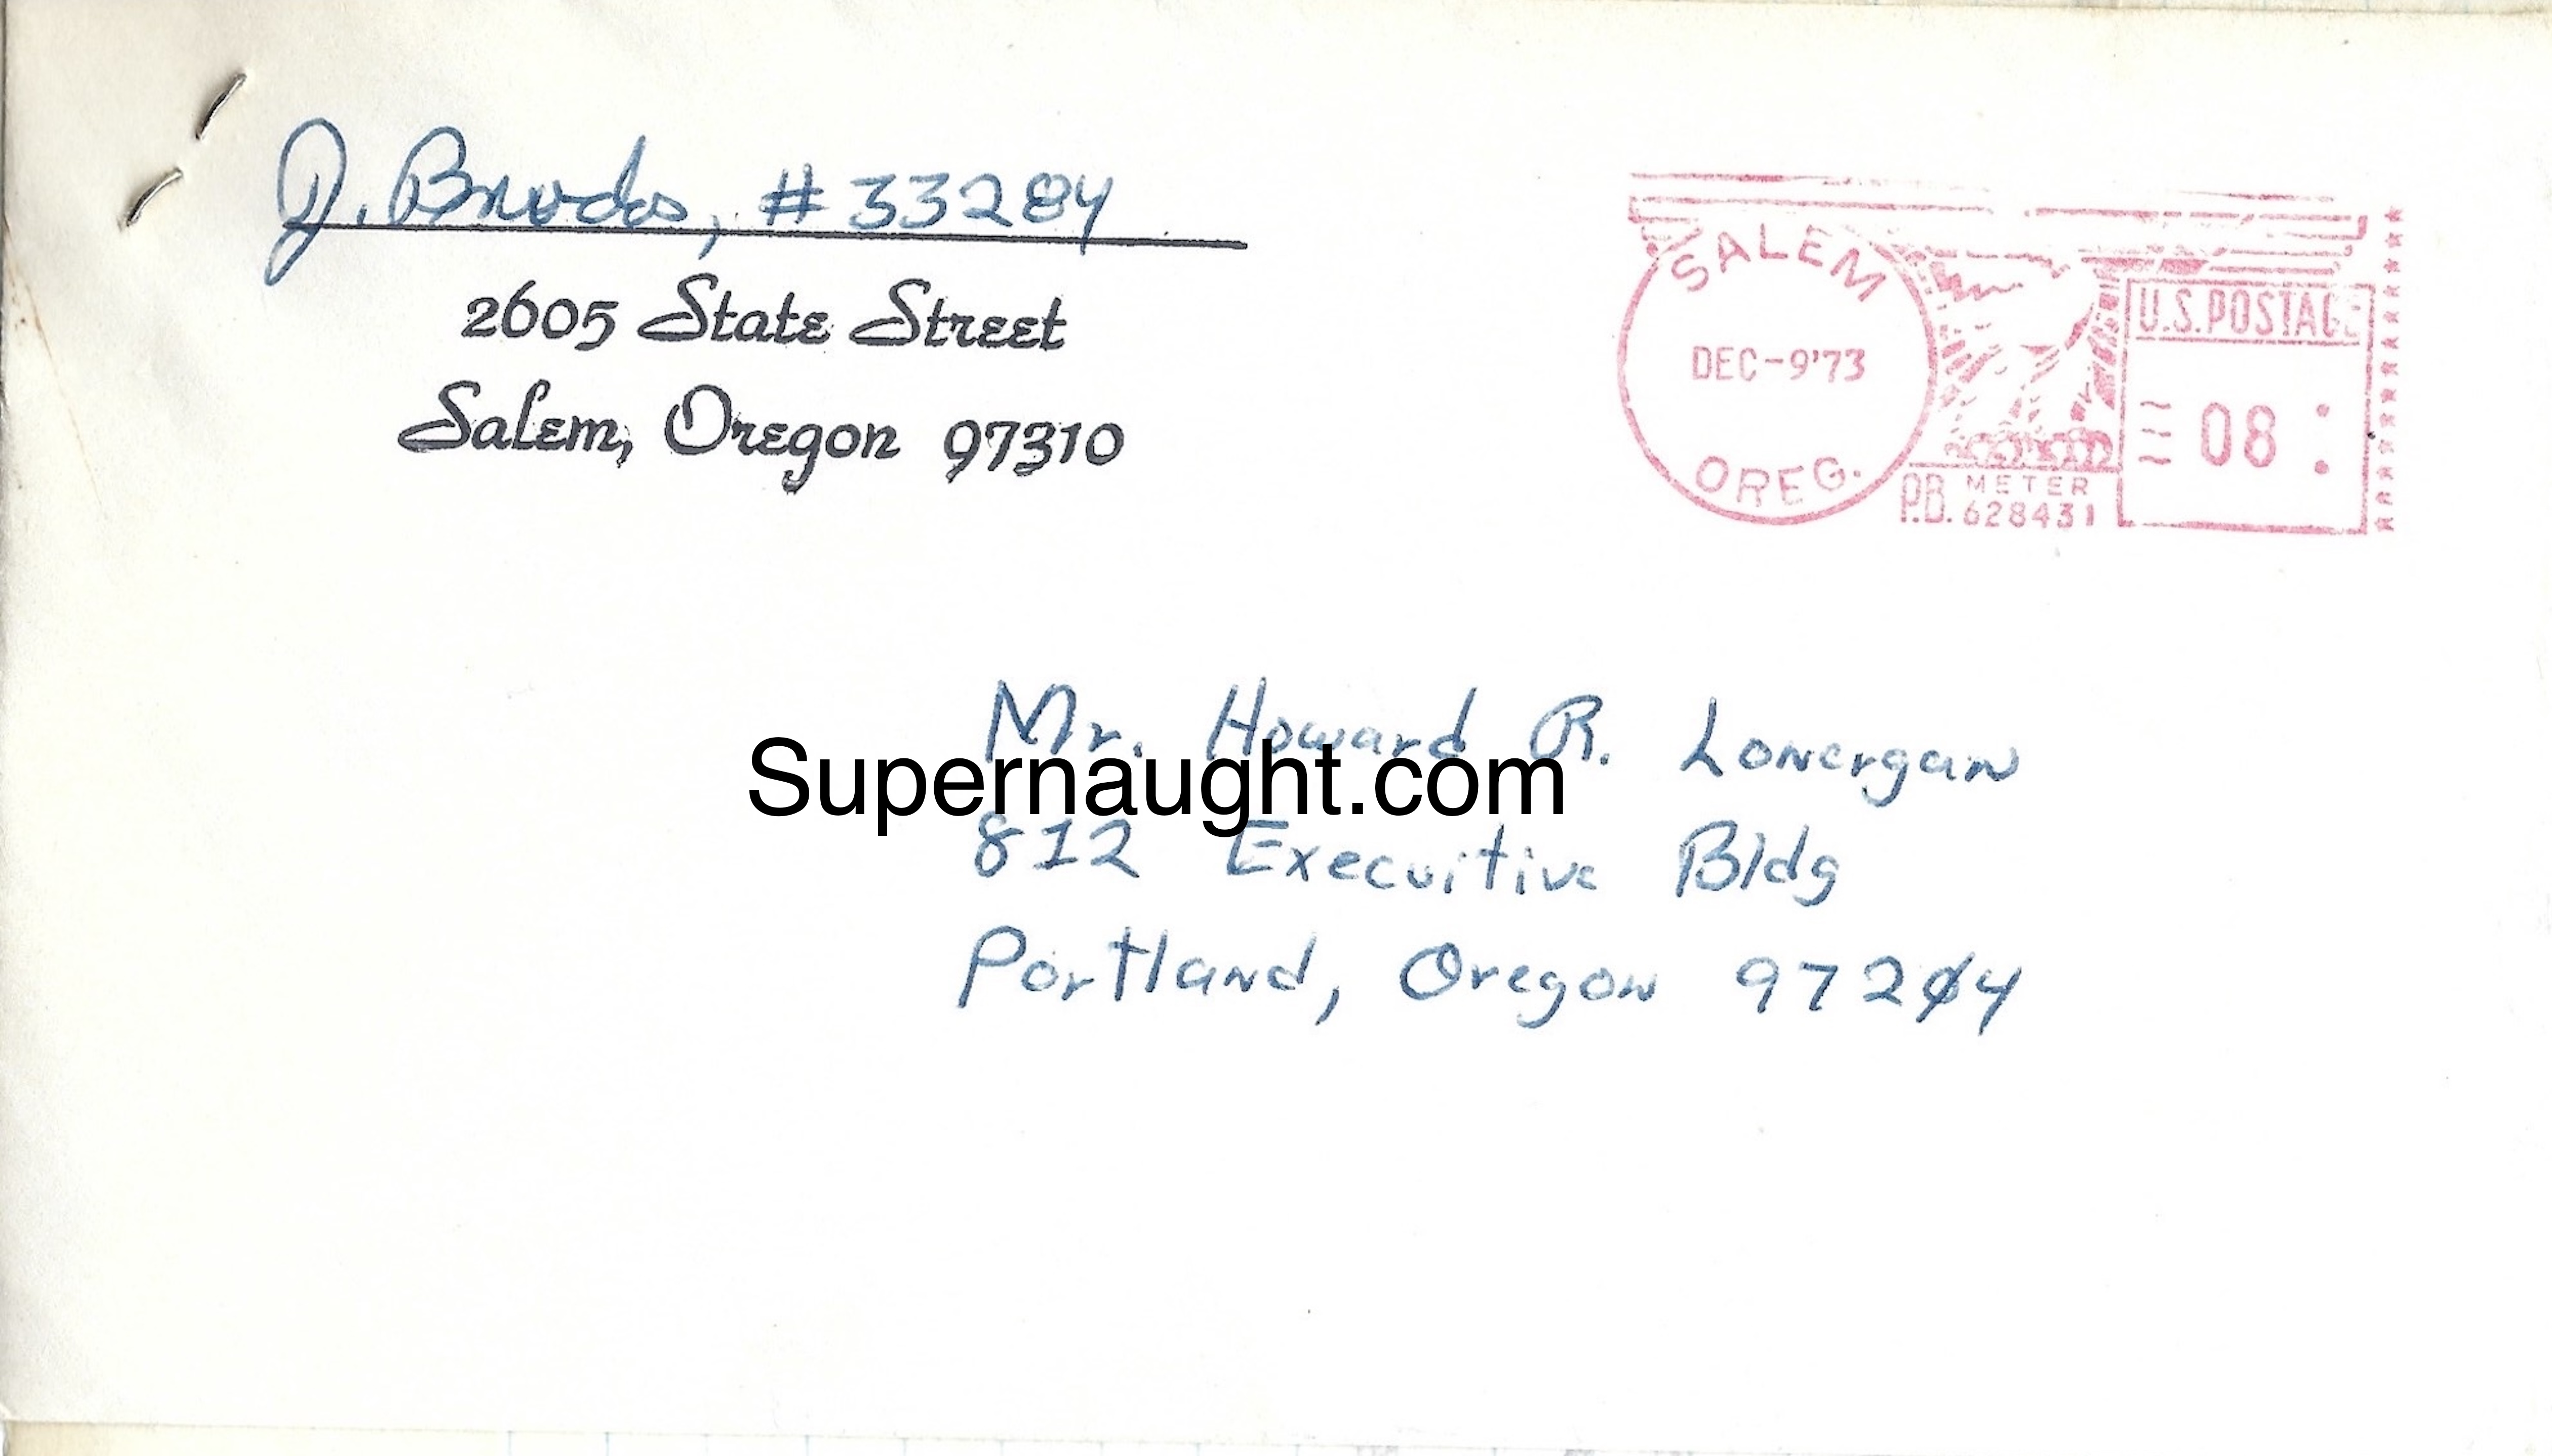 J. Brudos, #33284
2605 State Street
Salem, Oregon 97310
SALEM
DEC-9'73
OREG.
U.S. POSTAGE
08
P.B. METER
628431
Mr. Howard R. Lonergan
Supernaught.com
812 Execuitive Bldg
Portland, Oregon 97204